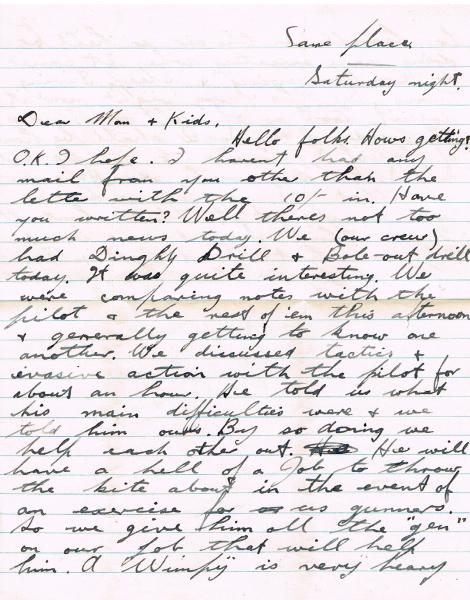 Same place
Saturday night.
Dear Mom & Kids,
Hello folks. Hows getting?
O.K. I hope. I havent had any
mail from you other than the
lette with the 10/- in. Have
you written? Well theres not too
much news today. We (our crew)
had Dinghy Drill & Bale-out drill
today. It was quite interesting. We
were comparing notes with the
pilot & the rest of 'em this afternoon
& generally getting to know one
another. We discussed tactics &
evasive action with the pilot for
about an hour. He told us what
his main difficulties were & we
told him ours. By so doing we
help each other out. He will
have a hell of a Job to throw
the kite about in the event of
an exercise for us gunners.
So we give him all the "gen"
on our job that will help
him. A "Wimpy" is very heavy